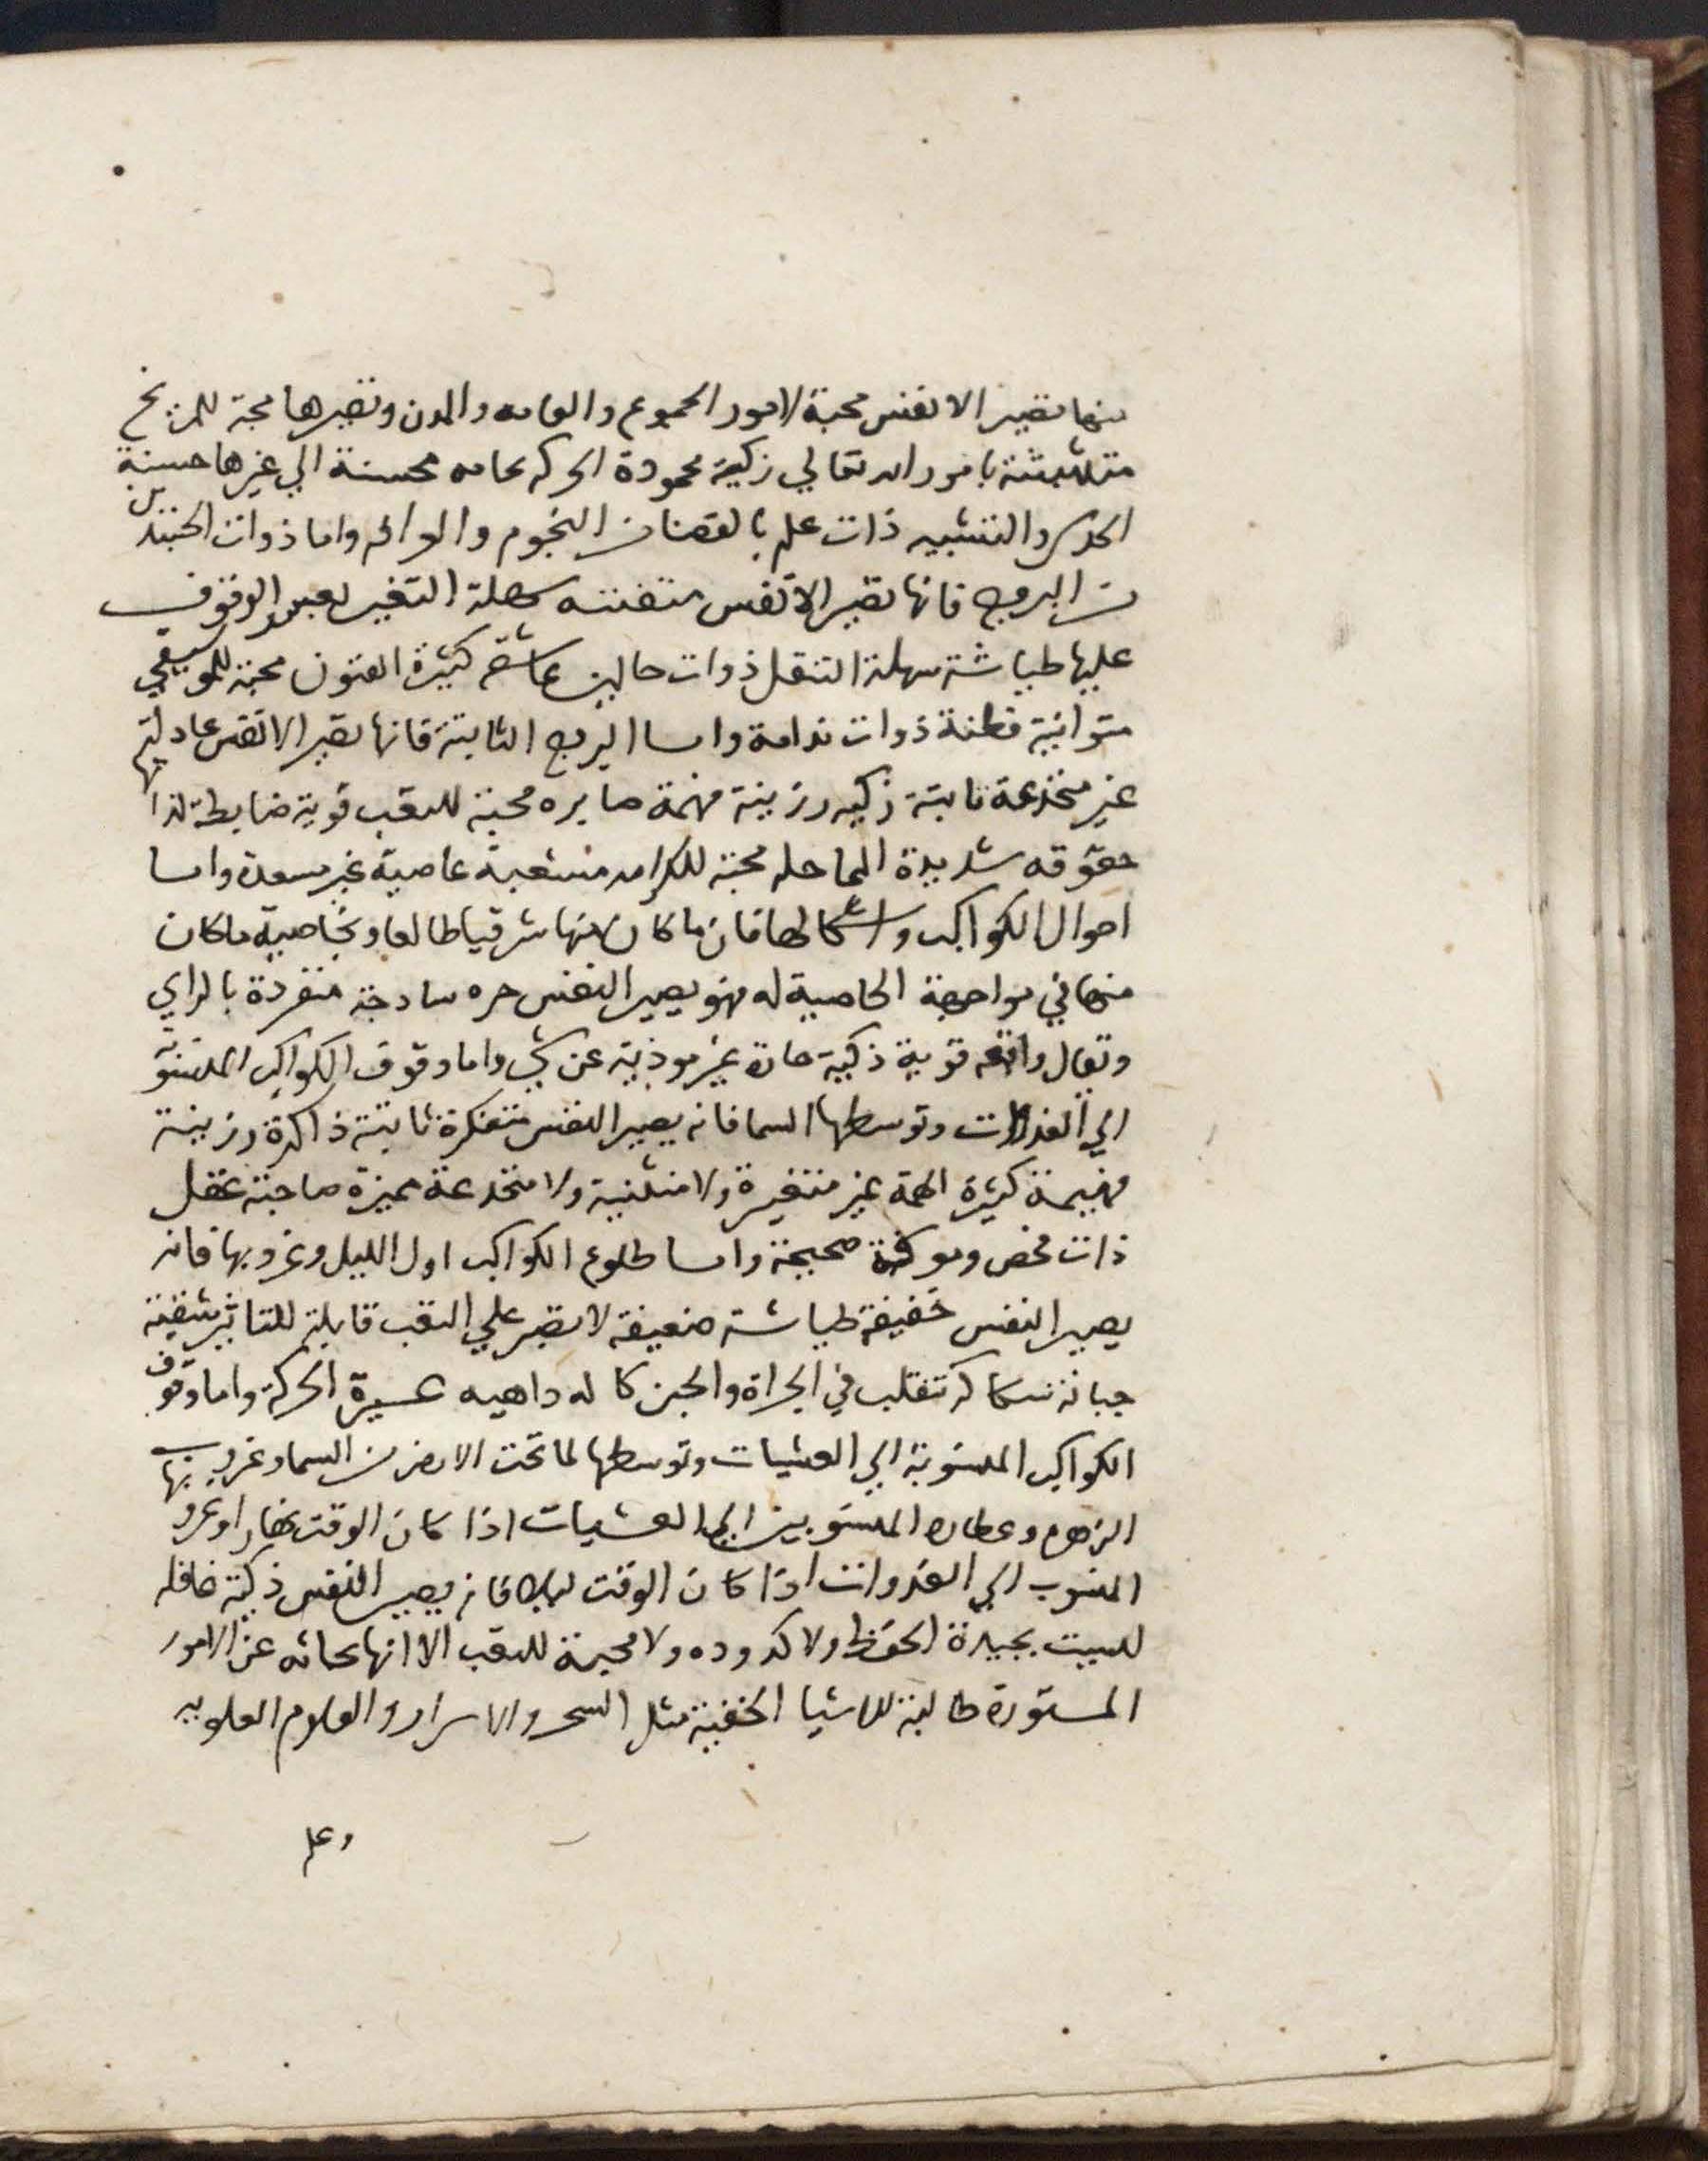 منها تصير الانفس محبة لامور الجموع والعامه والمدن وتصيرها محبة للمريخ
متشبثة بامور الله تعالي زكية محمودة الحركه عامه محسنة الي غيرها حسنة
الحدس والتشبيه ذات علم بالقضا من النجوم والوالم واما ذوات الجسدين
من البروج فانها تصير الانفس متفننه سهلة التغير لعسر الوقوف
عليها طياشة سهلة التنقل ذوات حالين عاشقه كثيرة الفنون محبة للموسيقي
متوانية فطنة ذوات ندامة واما البروج الثابتة فانها تصير الانفس عادلة
غير منخدعة ثابتة زكيه رزينة فهمة صابره محبة للتعب قوية ضابطة لذاتها
حقوقه شديدة المماحله محبة للكرامه منشعبة عاصية غير مسعدة واما
احوال الكواكب واشكالها فان ما كان منها شرقيا طالعا وبخاصية ما كان
منها في مواجهة الخاصية له فهو يصير النفس حره ساذجة منفردة بالراي
وتعال واقعه قوية ذكية حادة غير موذية عن شي واما وقوف الكواكب المنسوبة
الي الغدوات وتوسطها السما فانه يصير النفس متفكرة ثابتة ذاكرة رزينة
فهيمة كثيرة الهمة غير متغيرة ولا منثنية ولا منخدعة مميزة صاحبة عقل
ذات فحص ومعرفة صحيحة واما طلوع الكواكب اول الليل وغروبها فانه
يصير النفس خفيفة طياشة ضعيفة لا تصبر علي التعب قابلة للتاثير شفيقة
جبانة شكاكه تتقلب في الجراة والجبن كاله داهيه عسيرة الحركة واما وقوف
الكواكب المنسوبة الي العشيات وتوسطها لما تحت الارض من السما وغروبها
الزهره وعطارد المنسوبين الي العشيات اذا كان الوقت نهارا وغروب
المنسوب الي الغدوات اذا كان الوقت ليلا فانه يصير النفس ذكية فاضله
ليست بجيدة الحفظ ولا كدوده ولا محبة للتعب الا انها بحاثه عن الامور
المستورة طالبة للاشيا الخفية مثل السحر والاسرار والعلوم العلويه
وعلم